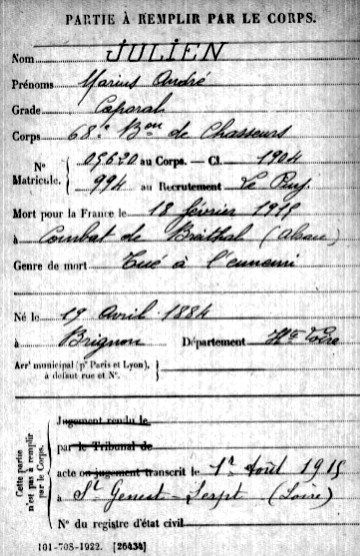 PARTIE À REMPLIR PAR LE CORPS.
Nom JULIEN
Prénoms Marius André
Grade Caporal
Corps 68e Bon de Chasseurs
N° Matricule. 05620 au Corps. — Cl. 1904
994 au Recrutement Le Puy
Mort pour la France le 18 février 1915
à Combat de (Alsace)
Genre de mort Tué à l'ennemi
Né le 19 Avril 1884
à Brignon Département Hte Loire
Arrt municipal (pr Paris et Lyon), à défaut rue et N°.
Cette partie n'est pas à remplir par le Corps.
Jugement rendu le
par le Tribunal de
acte ou jugement transcrit le 1er Août 1915
à St Genest-Lerpt (Loire)
N° du registre d'état civil
101-708-1922. [26434]